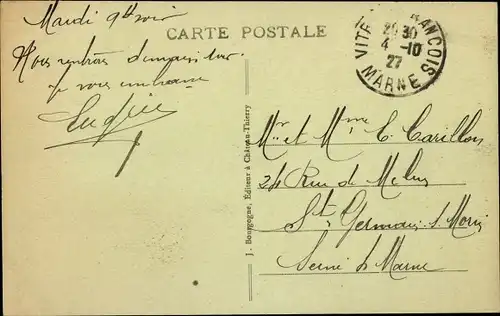 CARTE POSTALE
Mardi 9h soir
Nous rentrons demain soir
je vous embrasse
VITRY FRANCOIS
20 30
4 -10
27
MARNE
J. Bourgogne, Editeur à Château-Thierry
Mr et Mme C. Carillon
24 Rue de Melun
St Germain s. Morin
Seine & Marne